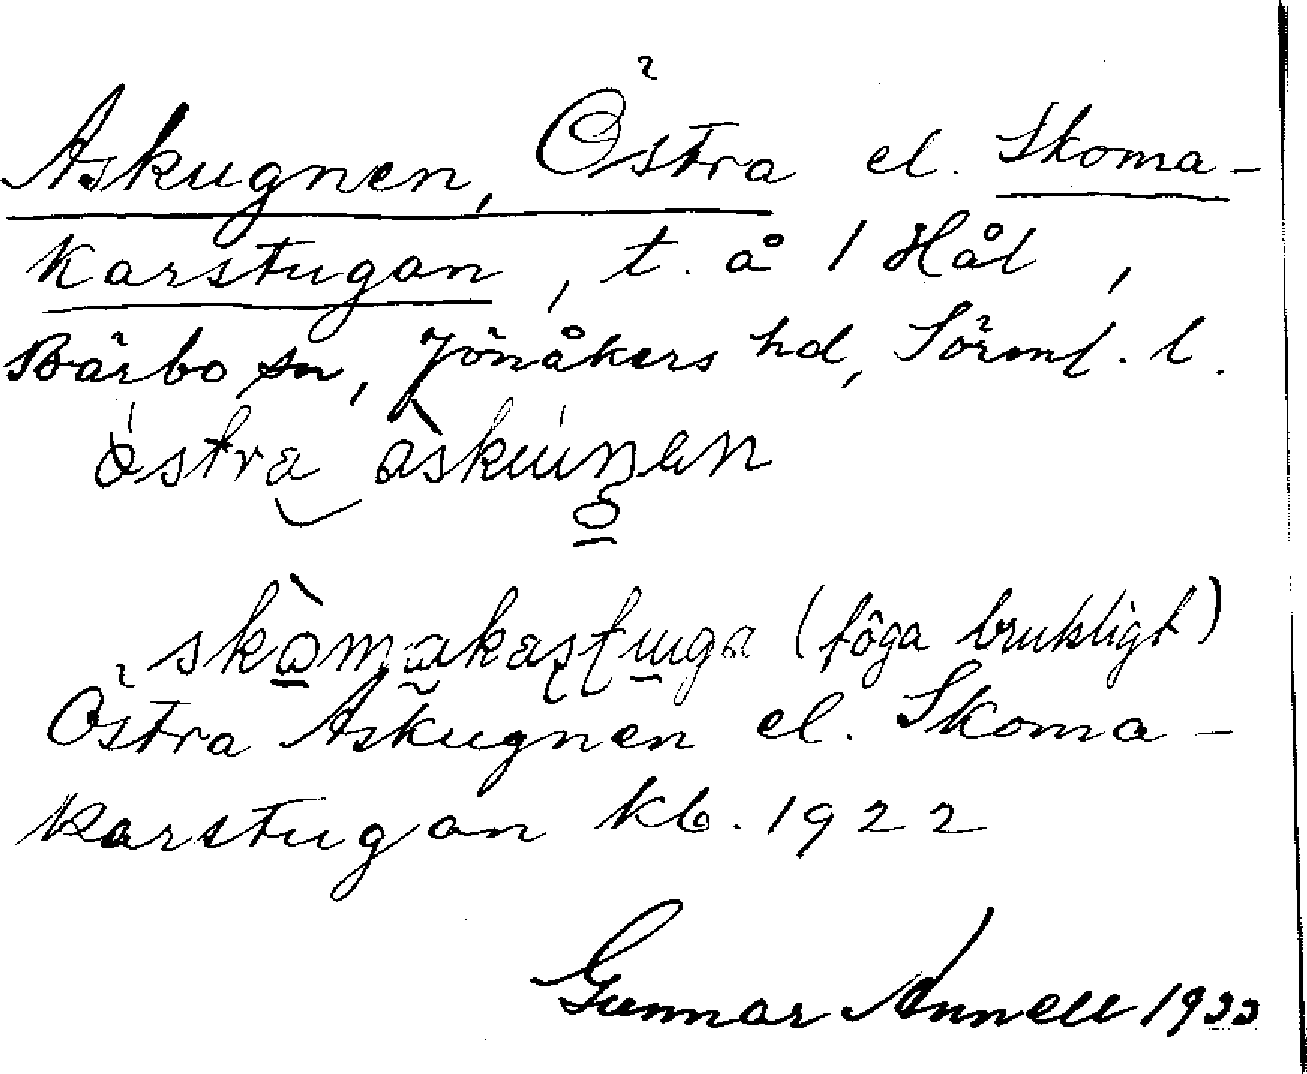 Askugnen, Östra el. Skoma-
karstugan, t. å 1 Hål,
Bärbo sn, Jönåkers hd, Sörml. l.
(föga brukligt)
Östra Askugnen el. Skoma-
karstugan kb. 1922
Gunnar Annell 1933